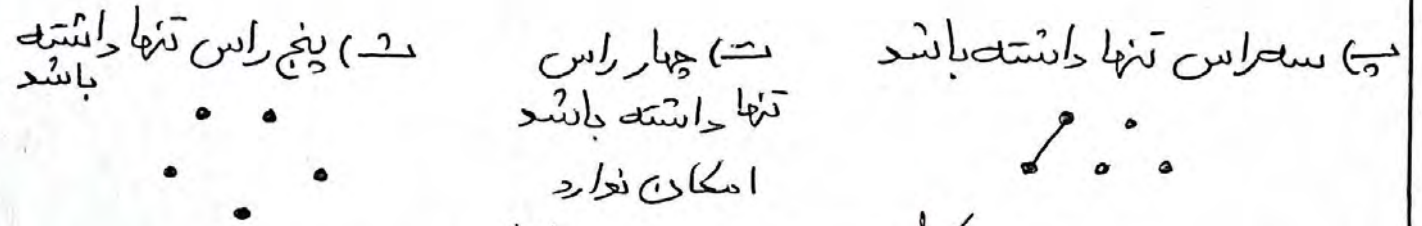 پ) سه راس تنها داشته باشد
ت) چهار راس
تنها داشته باشد
امکان ندارد
ث) پنج راس تنها داشته
باشد